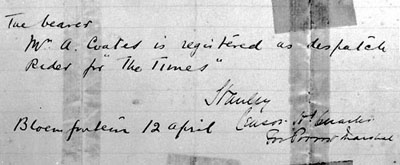 The bearer
Mr A. Coates is registered as despatch
Rider for "The Times"
Stanley
Bloemfontein 12 april Censor
for Provost Marshal